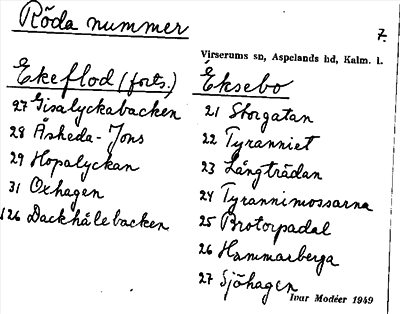 Röda nummer
7.
Virserums sn, Aspelands hd, Kalm. l.
Ekeflod (forts.)
27 Gisalyckabacken
28 Åskeda-Jons
29 Hopalyckan
31 Oxhagen
126 Dackhålebacken
Eksebo
21 Storgatan
22 Tyranriet
23 Långträdan
24 Tyrannimossarna
25 Brotorpadal
26 Hammarberga
27 Sjöhagen
Ivar Modéer 1949